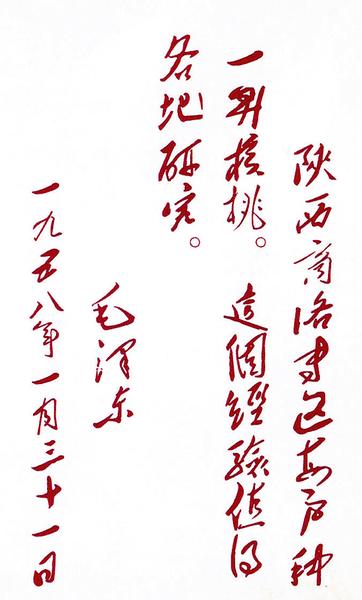 陕西商洛专区每户种
一升核桃。這個經驗值得
各地研究。
毛泽东
一九五八年一月三十一日